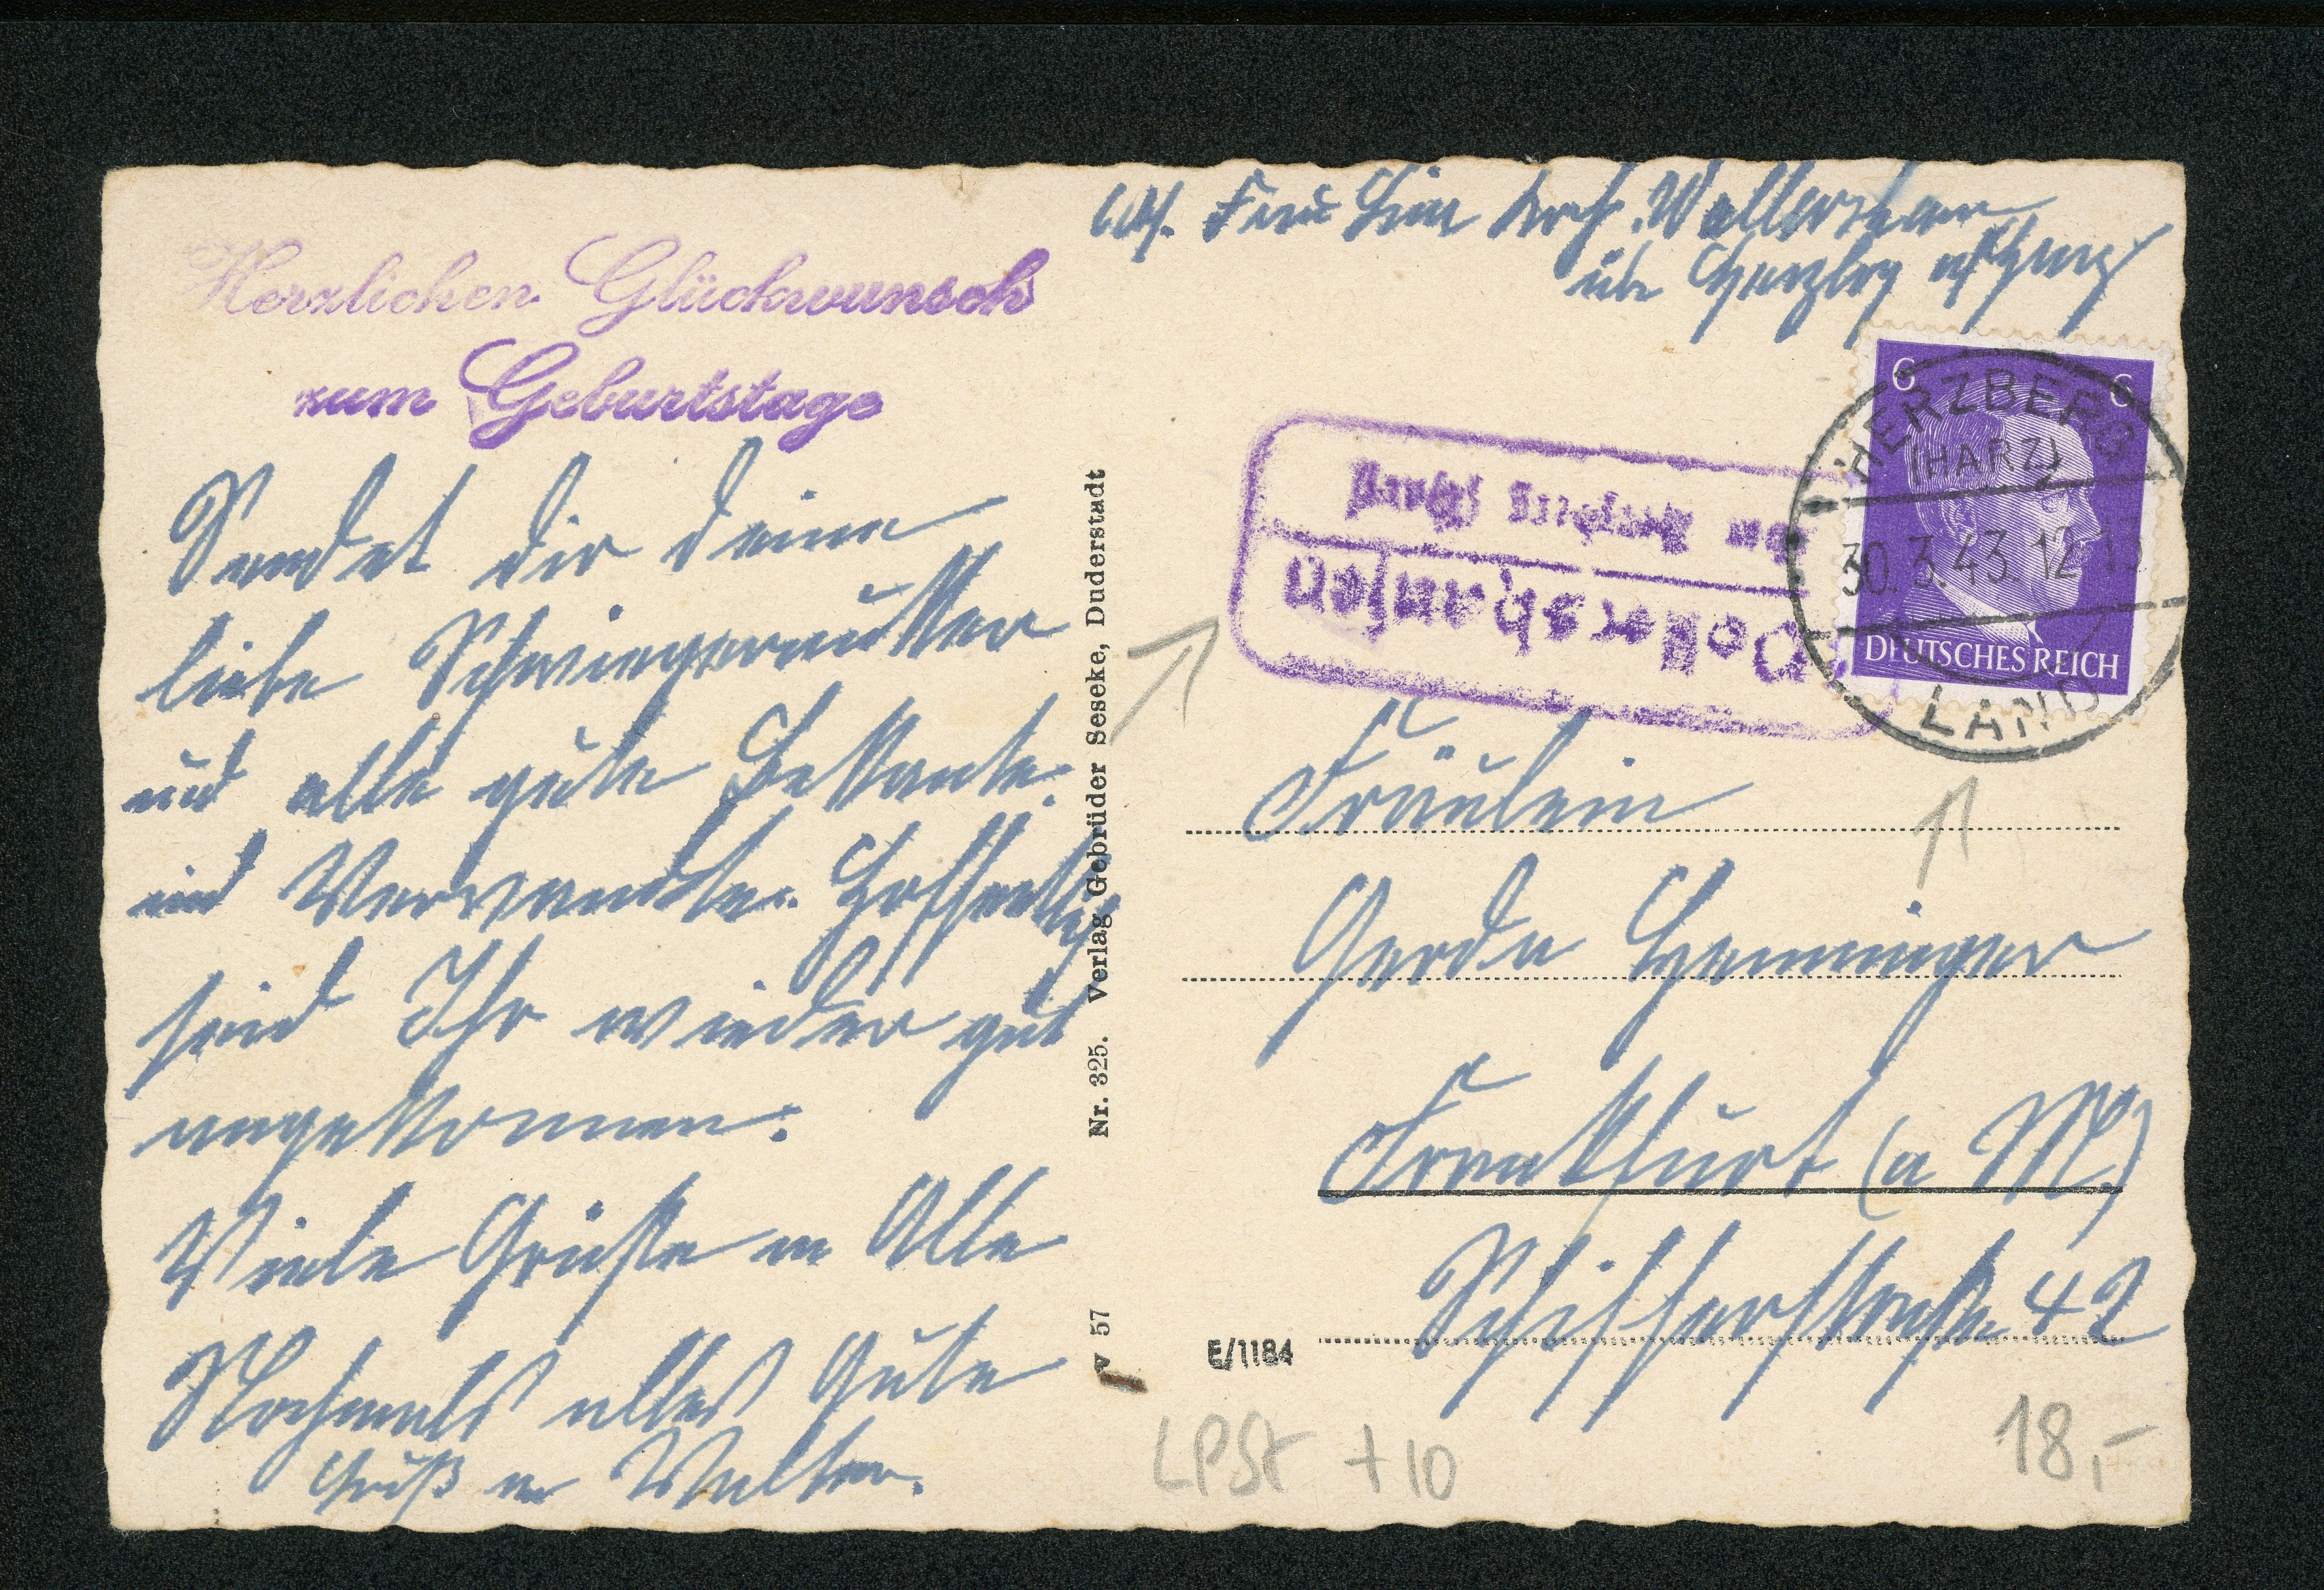 Herzlichen Glückwunsch
zum Geburtstage
Sendet dir deine
liebe Schwiegermutter
und alle gute Bekannte.
und Verwandte. Hoffentlich
seid Ihr wieder gut
angekommen.
Viele Grüße an Alle
Nochmals alles Gute
Gruß an Walter.
Nr. 325. Verlag Gebrüder Seseke, Duderstadt
W 57
Abs. Frau
über Herzberg a/Harz
6 6
DEUTSCHES REICH
HERZBERG
(HARZ)
30.3.43.12-13
LAND
Vollershausen
über Herzberg (Harz)
Fräulein
Gerda Henninger
Frankfurt (a M.)
Schifferstraße 42
E/1184
LPSt +10
18,-